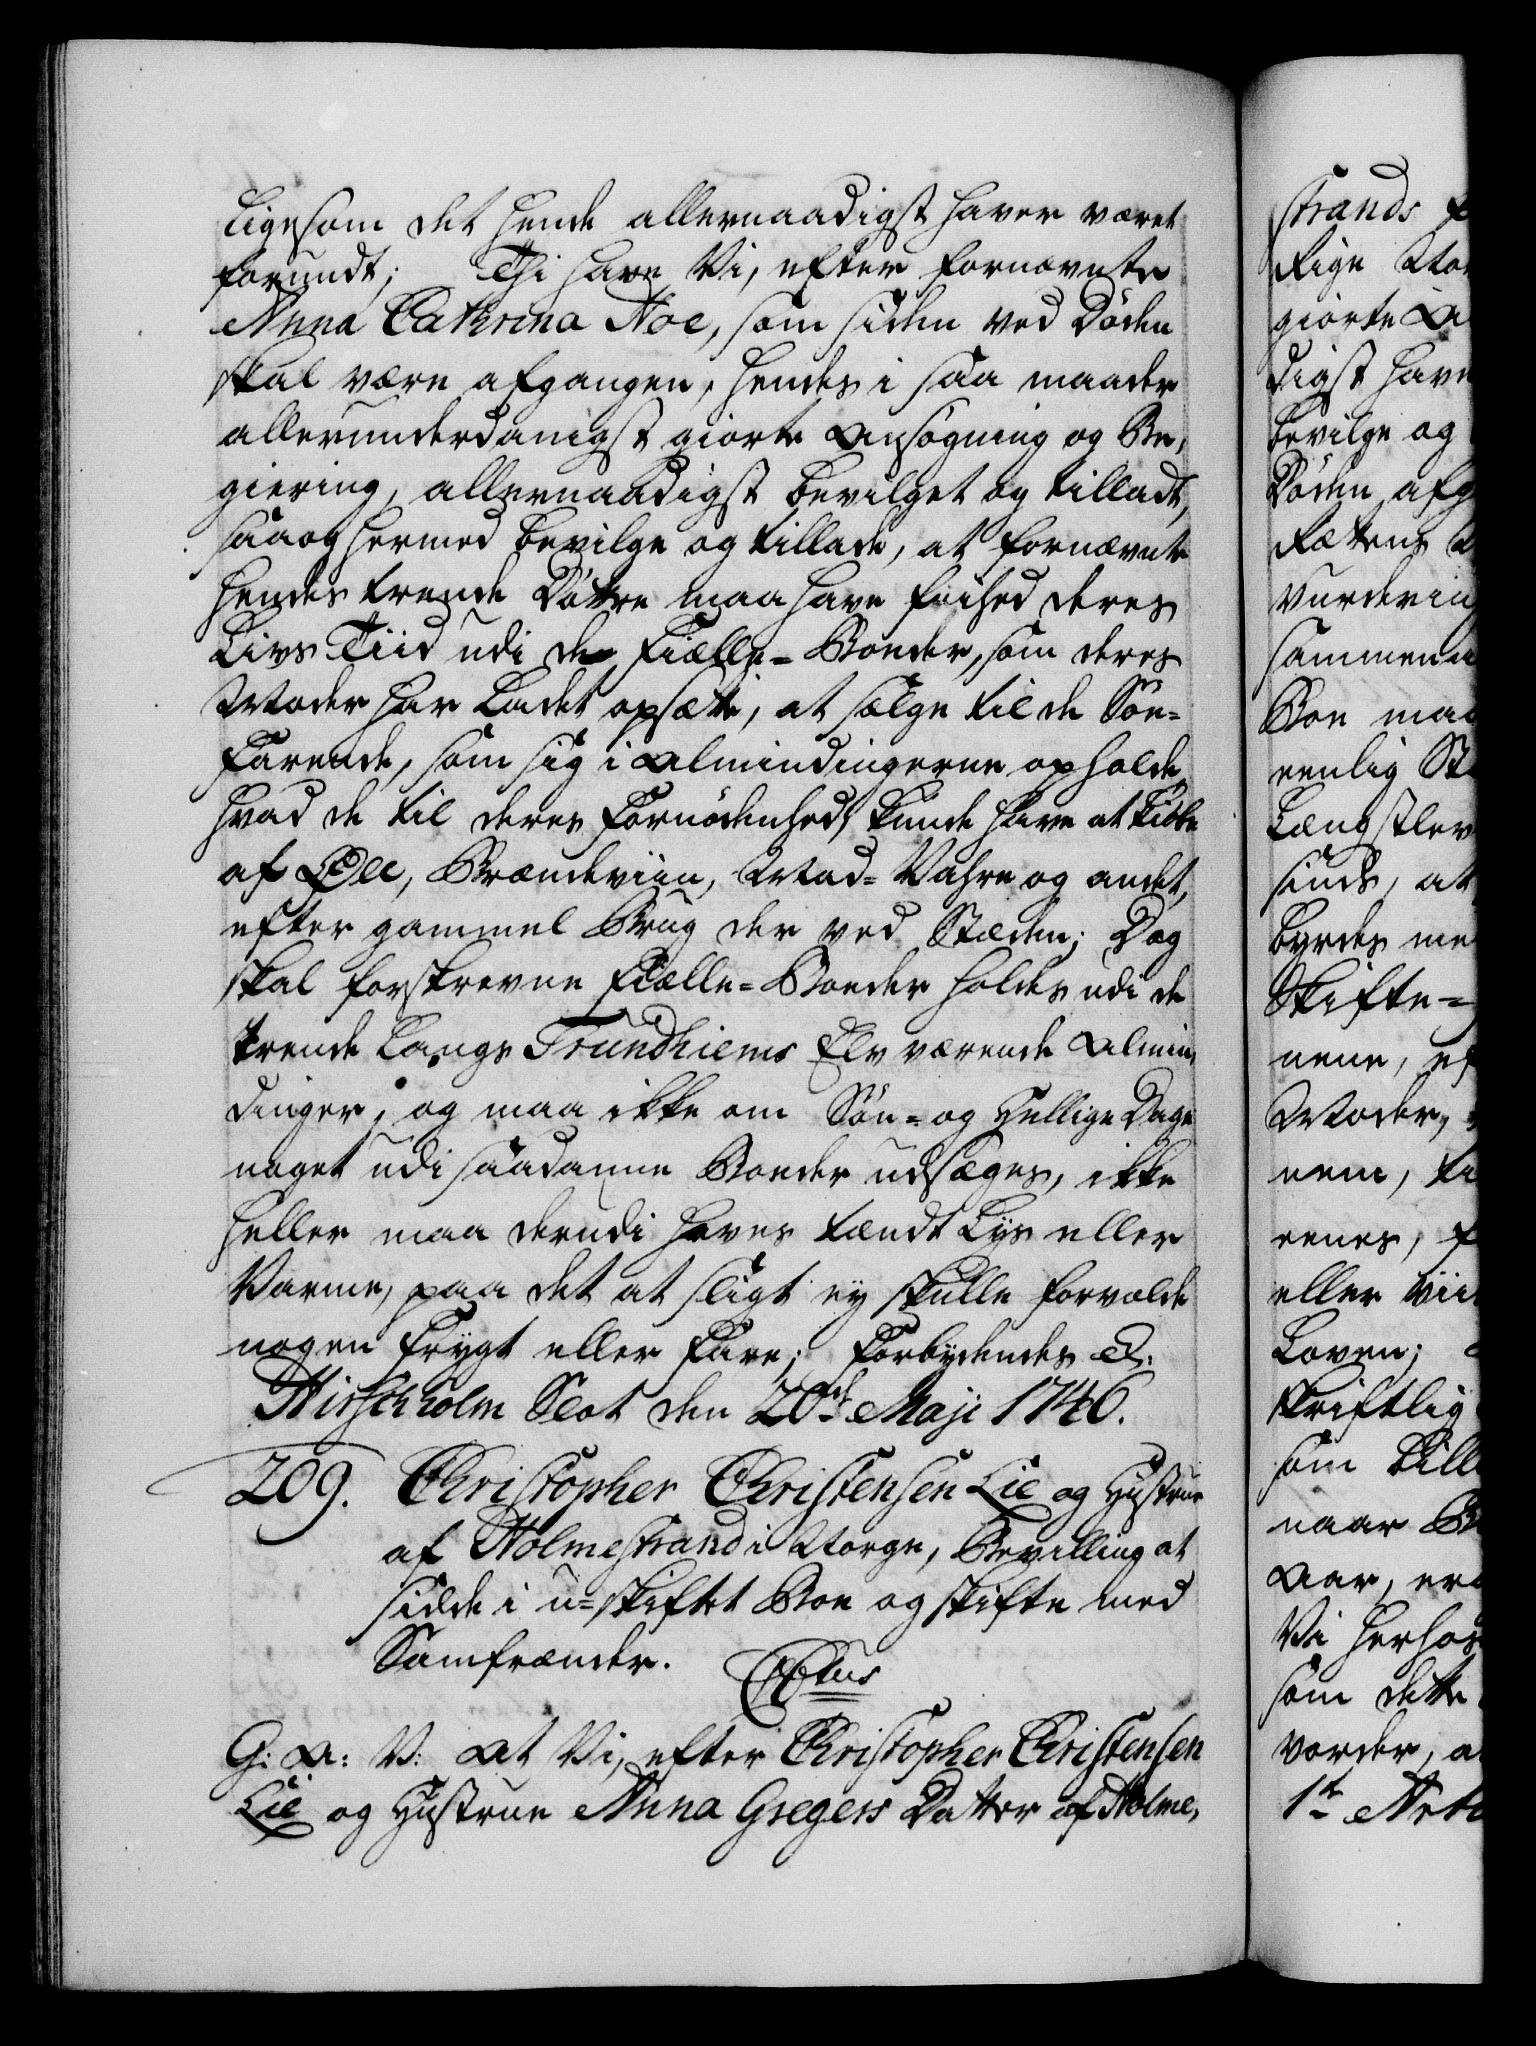 ligesom det hende allernaadigst haver været
forundt; Thi have Vi, efter fornævnte
Anna Cathrina Noe, som siden ved Døden
skal være afgangen, hendes i saa maader
allerunderdanigst giorte Ansøgning og Be,
giering, allernaadigst bevilget og tilladt,
saa og hermed bevilge og tillade, at fornævnte
hendes trende Døttre maa have frihed deres
Livs Tiid udi de Fiælle-Boeder, som deres
Moder har ladet opsætte, at sælge til de Søe-
farende, som sig i Almindingerne opholde,
hvad de til deres Fornødenhed kunde have at kiøbe
af Øll, Brændeviin, Mad-Vahre og andet,
efter gammel Brug der ved Stæden; Dog
skal forskrevne Fiælle-Boeder holdes udi de
trende langs Trundhiems Elv værende Almin,
dinger, og maa ikke om Søn- og Hellige Dage
noget udi saadanne Boeder udsælges, ikke
heller maa derudi haves tændt Lys eller
Varme, paa det at sligt ey skulle forvolde
nogen Frygt eller Fare; Forbydendes &.
Hirschholm Slot den 20de Maji 1746.
209. Christopher Christensen Lie og Hustrue
af Holmestrand i Norge, Bevilling at
sidde i u-skiftet Boe og skifte med
Samfrænder.
G: A: V: At Vi, efter Christopher Christensen
Lie og Hustrue Anna Gregers Datter af Holme,
strands
Rige Nor
giorte A
digst have
bevilge og
Døden afg
Rettens
vurdering
sammen
Boe maa
eenlig St
Længstlev
sinds, at
byrdes me
Skifte-
nene, ef
Moder,
nem, ti
eenes, f
eller Vii
Loven;
skriftlig
som till
naar B
Aar, er
Vi herhos
som dette
vorder, a
1te Art